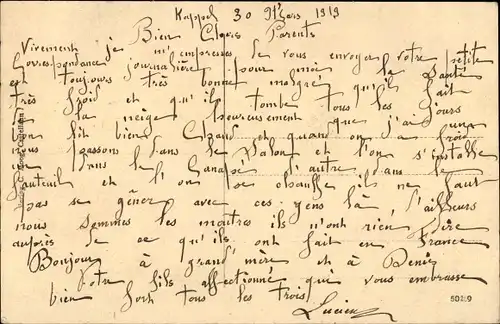 Kappel 30 Mars 1919
Bien Chers Parents
Vivement je m'empresse de vous envoyer votre petite
Correspondance journalière pour moi la Santé
est toujours très bonne malgré qu'il fait
très froid et qu'il tombe tous les jours
de la neige heureusement que j'ai un
bon lit bien Chaud et quand on a froid
nous passons dans le Salon et l'on s'installe
un dans le Canapé d'autre dans le
fauteuil et l'on se chauffe il ne faut
pas se gêner avec ces gens là d'ailleurs
nous sommes les maîtres ils n'ont rien à dire
auprès de ce qu'ils ont fait en France
Bonjour à grand'mère et à Denis
Votre fils affectionné qui vous embrasse
bien fort tous les trois
Lucien
50229